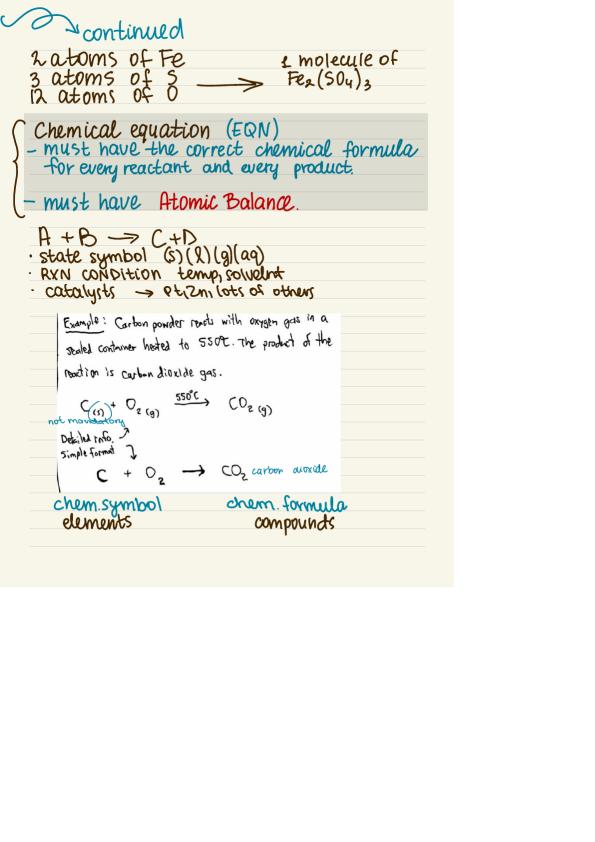 continued
2 atoms of Fe
3 atoms of S
12 atoms of O
1 molecule of
Fe₂(SO₄)₃
Chemical equation (EQN)
- must have the correct chemical formula
for every reactant and every product.
- must have Atomic Balance.
A + B → C+D
· state symbol (s)(l)(g)(aq)
· RXN CONDITION temp, solvent
· catalysts → Pt, Zn, lots of others
Example: Carbon powder reacts with oxygen gas in a
sealed container heated to 550°C. The product of the
reaction is carbon dioxide gas.
550°C
C(s) + O₂(g) → CO₂(g)
not mandatory
Detailed info.
Simple format
C + O₂ → CO₂ carbon dioxide
chem. symbol
elements
chem. formula
compounds